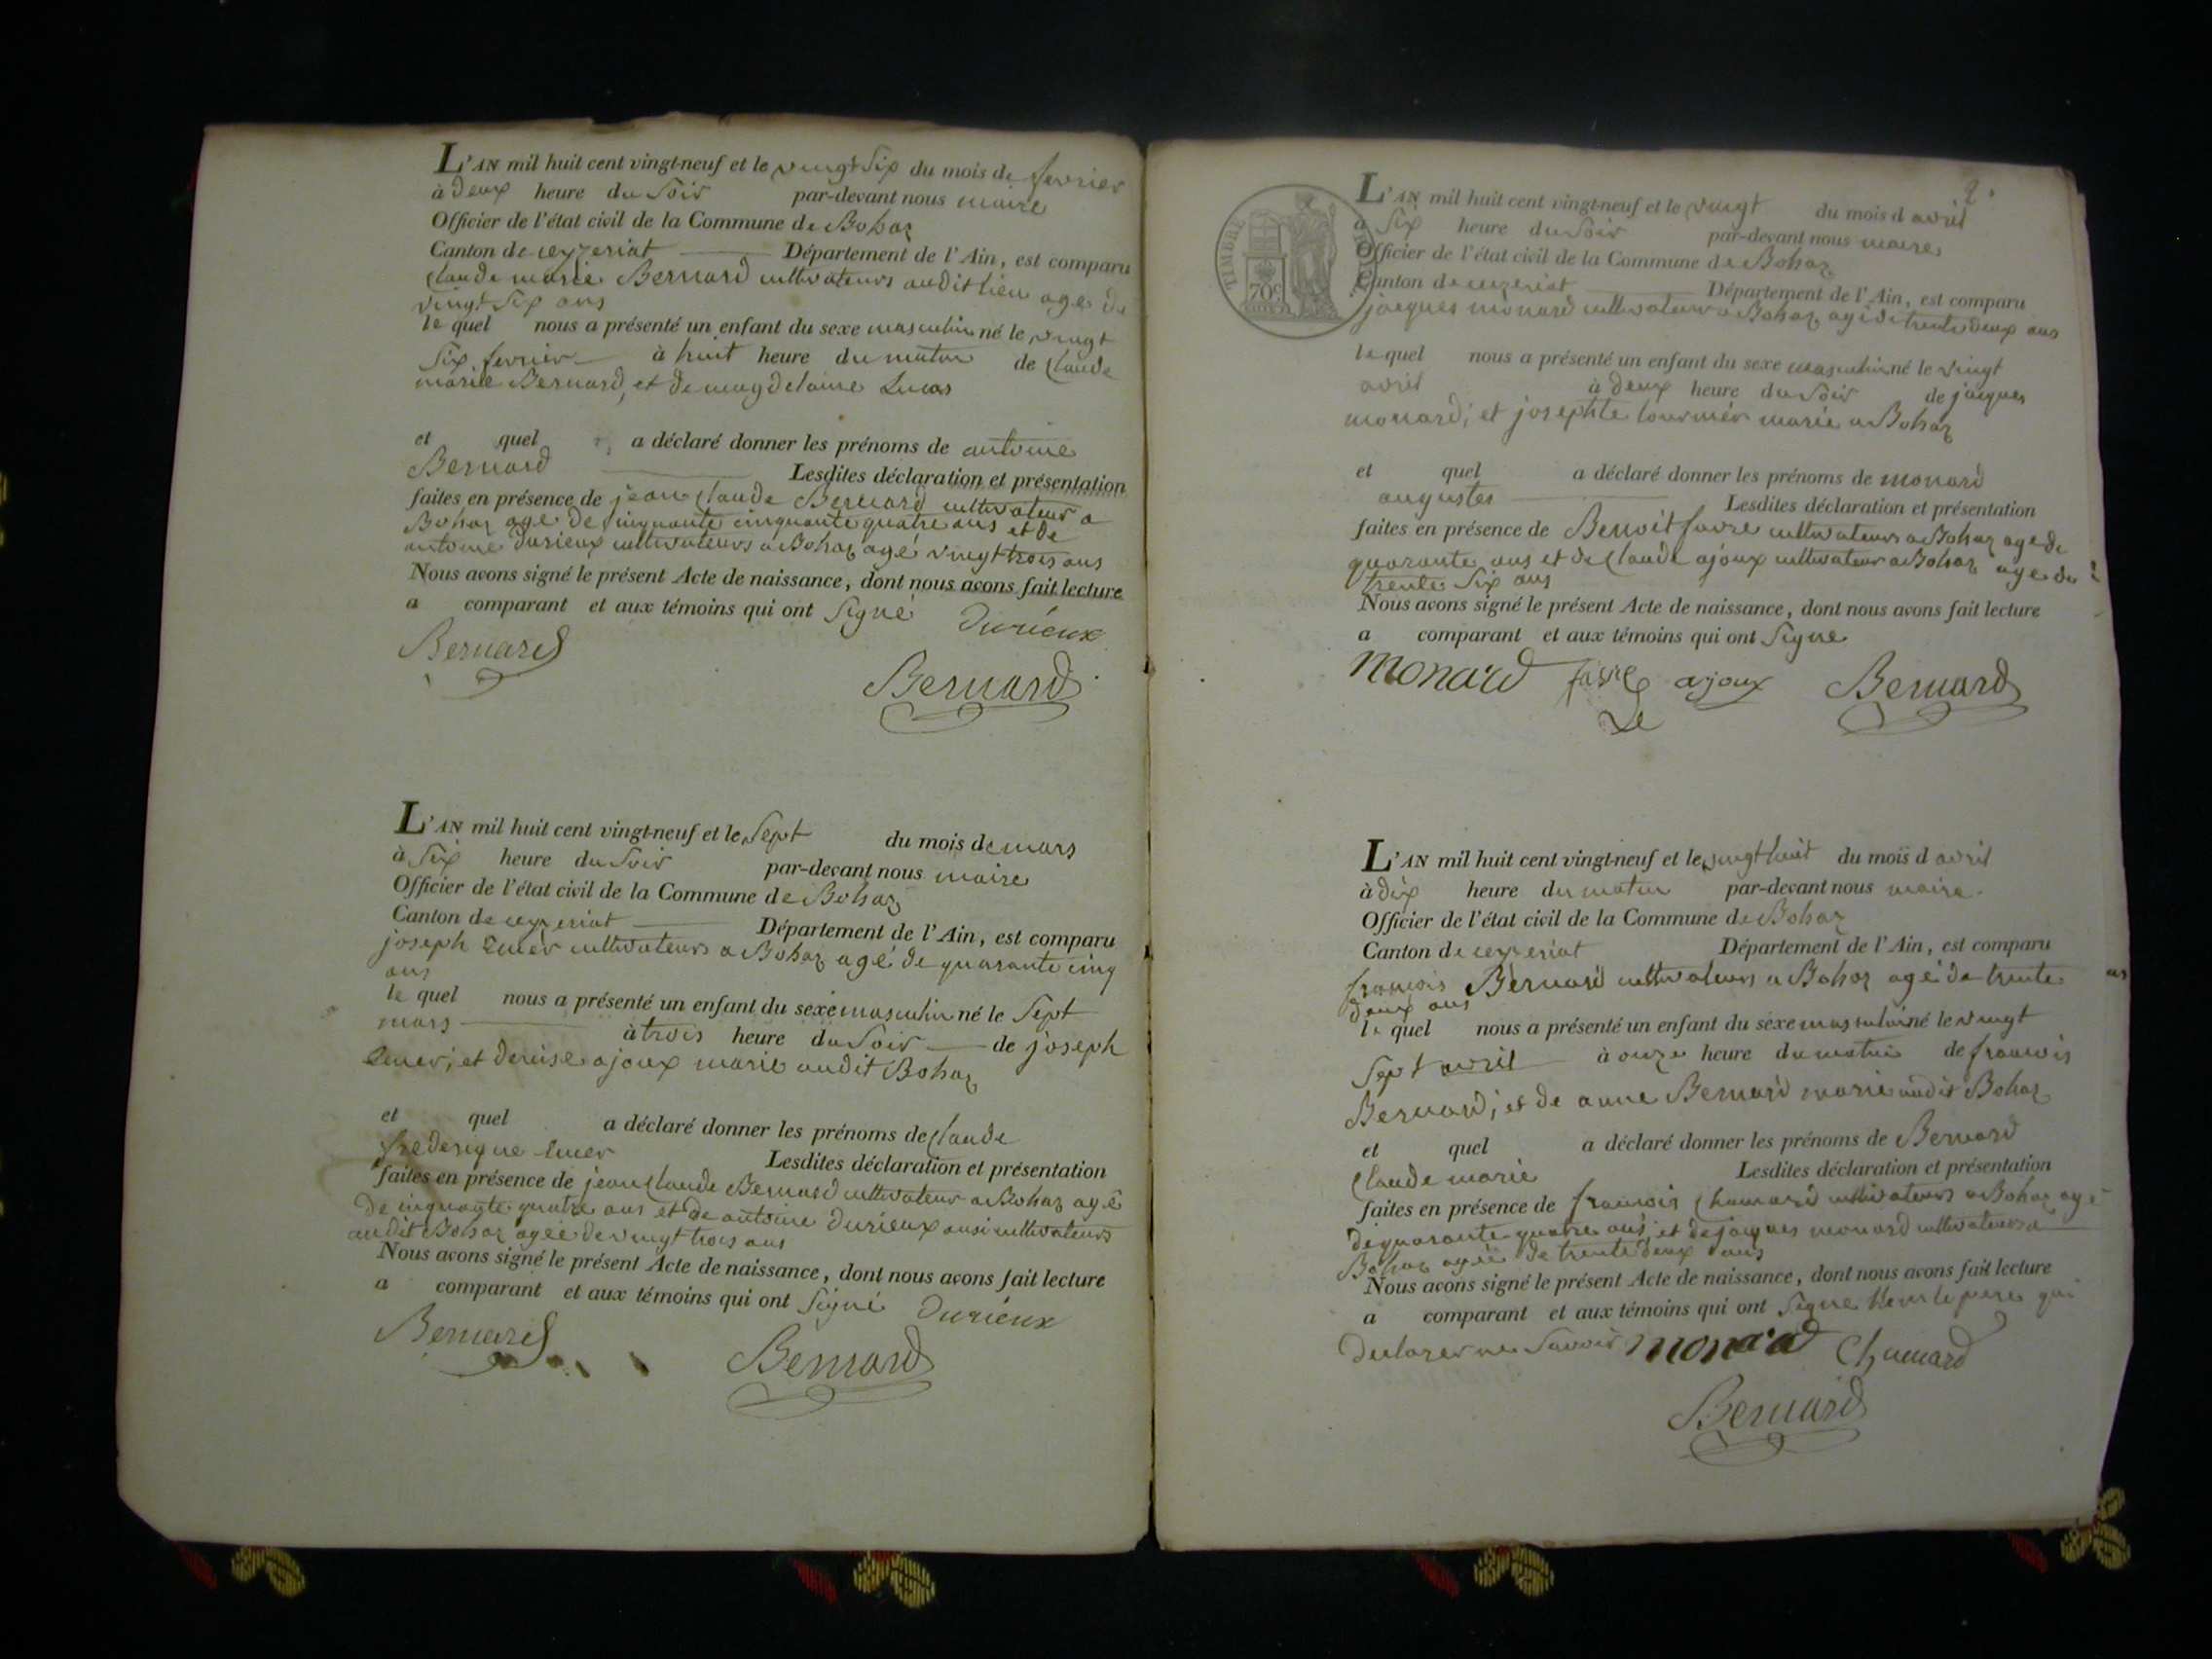 L'AN mil huit cent vingt-neuf et le vingt six du mois de fevrier
à deux heure du soir par-devant nous maire
Officier de l'état civil de la Commune de Bohaz
Canton de ceyzeriat Département de l'Ain, est comparu
Claude marie Bernard cultivateurs audit lieu age de
vingt six ans
le quel nous a présenté un enfant du sexe masculin né le vingt
six fevrier à huit heure du matin de Claude
marie Bernard, et de magdelaine Lucas
et quel a déclaré donner les prénoms de antoine
Bernard Lesdites déclaration et présentation
faites en présence de jean Claude Bernard cultivateur a
Bohaz age de cinquante cinquante quatre ans et de
antoine durieux cultivateurs a Bohaz agé vingt trois ans
Nous avons signé le présent Acte de naissance, dont nous avons fait lecture
a comparant et aux témoins qui ont signé durieux
Bernard
Bernard
L'AN mil huit cent vingt-neuf et le sept du mois de mars
à six heure du soir par-devant nous maire
Officier de l'état civil de la Commune de Bohaz
Canton de ceyzeriat Département de l'Ain, est comparu
joseph cultivateurs a Bohaz agé de quarante cinq
ans
le quel nous a présenté un enfant du sexe masculin né le sept
mars à trois heure du soir de joseph
et denise ajoux marie audit Bohaz
et quel a déclaré donner les prénoms de Claude
frederique Lesdites déclaration et présentation
faites en présence de jean Claude Bernard cultivateur a Bohaz agé
de cinquante quatre ans et de antoine durieux ausi cultivateurs
audit Bohaz agée de vingt trois ans
Nous avons signé le présent Acte de naissance, dont nous avons fait lecture
a comparant et aux témoins qui ont signé durieux
Bernard
Bernard
2.
TIMBRE
70c
L'AN mil huit cent vingt-neuf et le vingt du mois d avril
a six heure du soir par-devant nous maire
Officier de l'état civil de la Commune de Bohaz
Canton de ceyzeriat Département de l'Ain, est comparu
jacques monard cultivateurs a Bohaz agé de trente deux ans
le quel nous a présenté un enfant du sexe masculin né le vingt
avril à deux heure du soir de jacques
monard; et josephte marie a Bohaz
et quel a déclaré donner les prénoms de monard
augustes Lesdites déclaration et présentation
faites en présence de Benoit favre cultivateurs a Bohaz age de
quarante ans et de Claude ajoux cultivateur a Bohaz age de
trente six ans
Nous avons signé le présent Acte de naissance, dont nous avons fait lecture
a comparant et aux témoins qui ont signe
monard favre ajoux Bernard
L'AN mil huit cent vingt-neuf et le vingt huit du mois d avril
à dix heure du matin par-devant nous maire
Officier de l'état civil de la Commune de Bohaz
Canton de ceyzeriat Département de l'Ain, est comparu
francois Bernard cultivateurs a Bohaz agé de trente
deux ans
le quel nous a présenté un enfant du sexe masculin né le vingt
sept avril à onze heure du matin de francois
Bernard; et de anne Bernard marie audit Bohaz
et quel a déclaré donner les prénoms de Bernard
Claude marie Lesdites déclaration et présentation
faites en présence de francois Chanard cultivateurs a Bohaz agé
de quarante quatre ans; et de jacques monard cultivateurs a
Bohaz agée de trente deux ans
Nous avons signé le présent Acte de naissance, dont nous avons fait lecture
a comparant et aux témoins qui ont signe le pere qui
ne savoir monard
Bernard